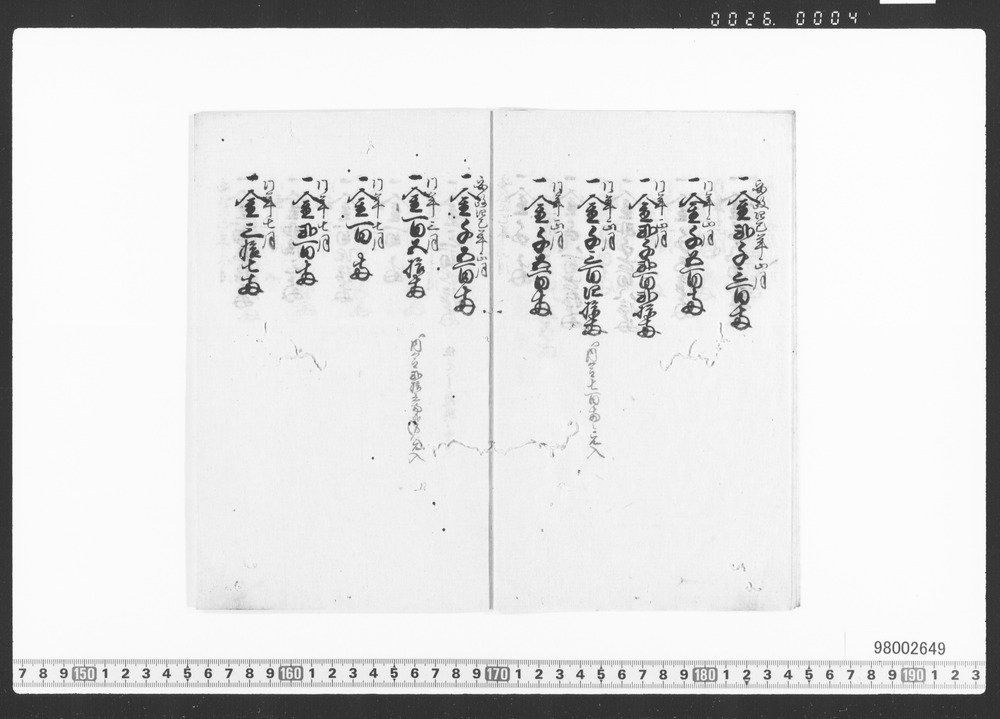 0026. 0004
安政四巳年正月
一金弐千三百両
同年正月
一金千五百両
同年正月
一金弐千弐百弐拾両
同年正月
一金千三百四拾両
同年正月
一金千五百両
安政四巳年正月
一金千五百両
同年三月
一金百五拾両
同年七月
一金百両
同年七月
一金弐百両
同年七月
一金三拾七両
98002649
7 8 9 150 1 2 3 4 5 6 7 8 9 160 1 2 3 4 5 6 7 8 9 170 1 2 3 4 5 6 7 8 9 180 1 2 3 4 5 6 7 8 9 190 1 2 3